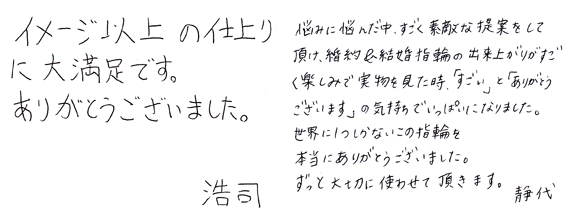 イメージ以上の仕上り
に大満足です。
ありがとうございました。
浩司
悩みに悩んだ中、すごく素敵な提案をして
頂け、婚約&結婚指輪の出来上がりがすご
く楽しみで実物を見た時、「すごい」と「ありがとう
ございます」の気持ちでいっぱいになりました。
世界に1つしかないこの指輪を
本当にありがとうございました。
ずっと大切に使わせて頂きます。
静代